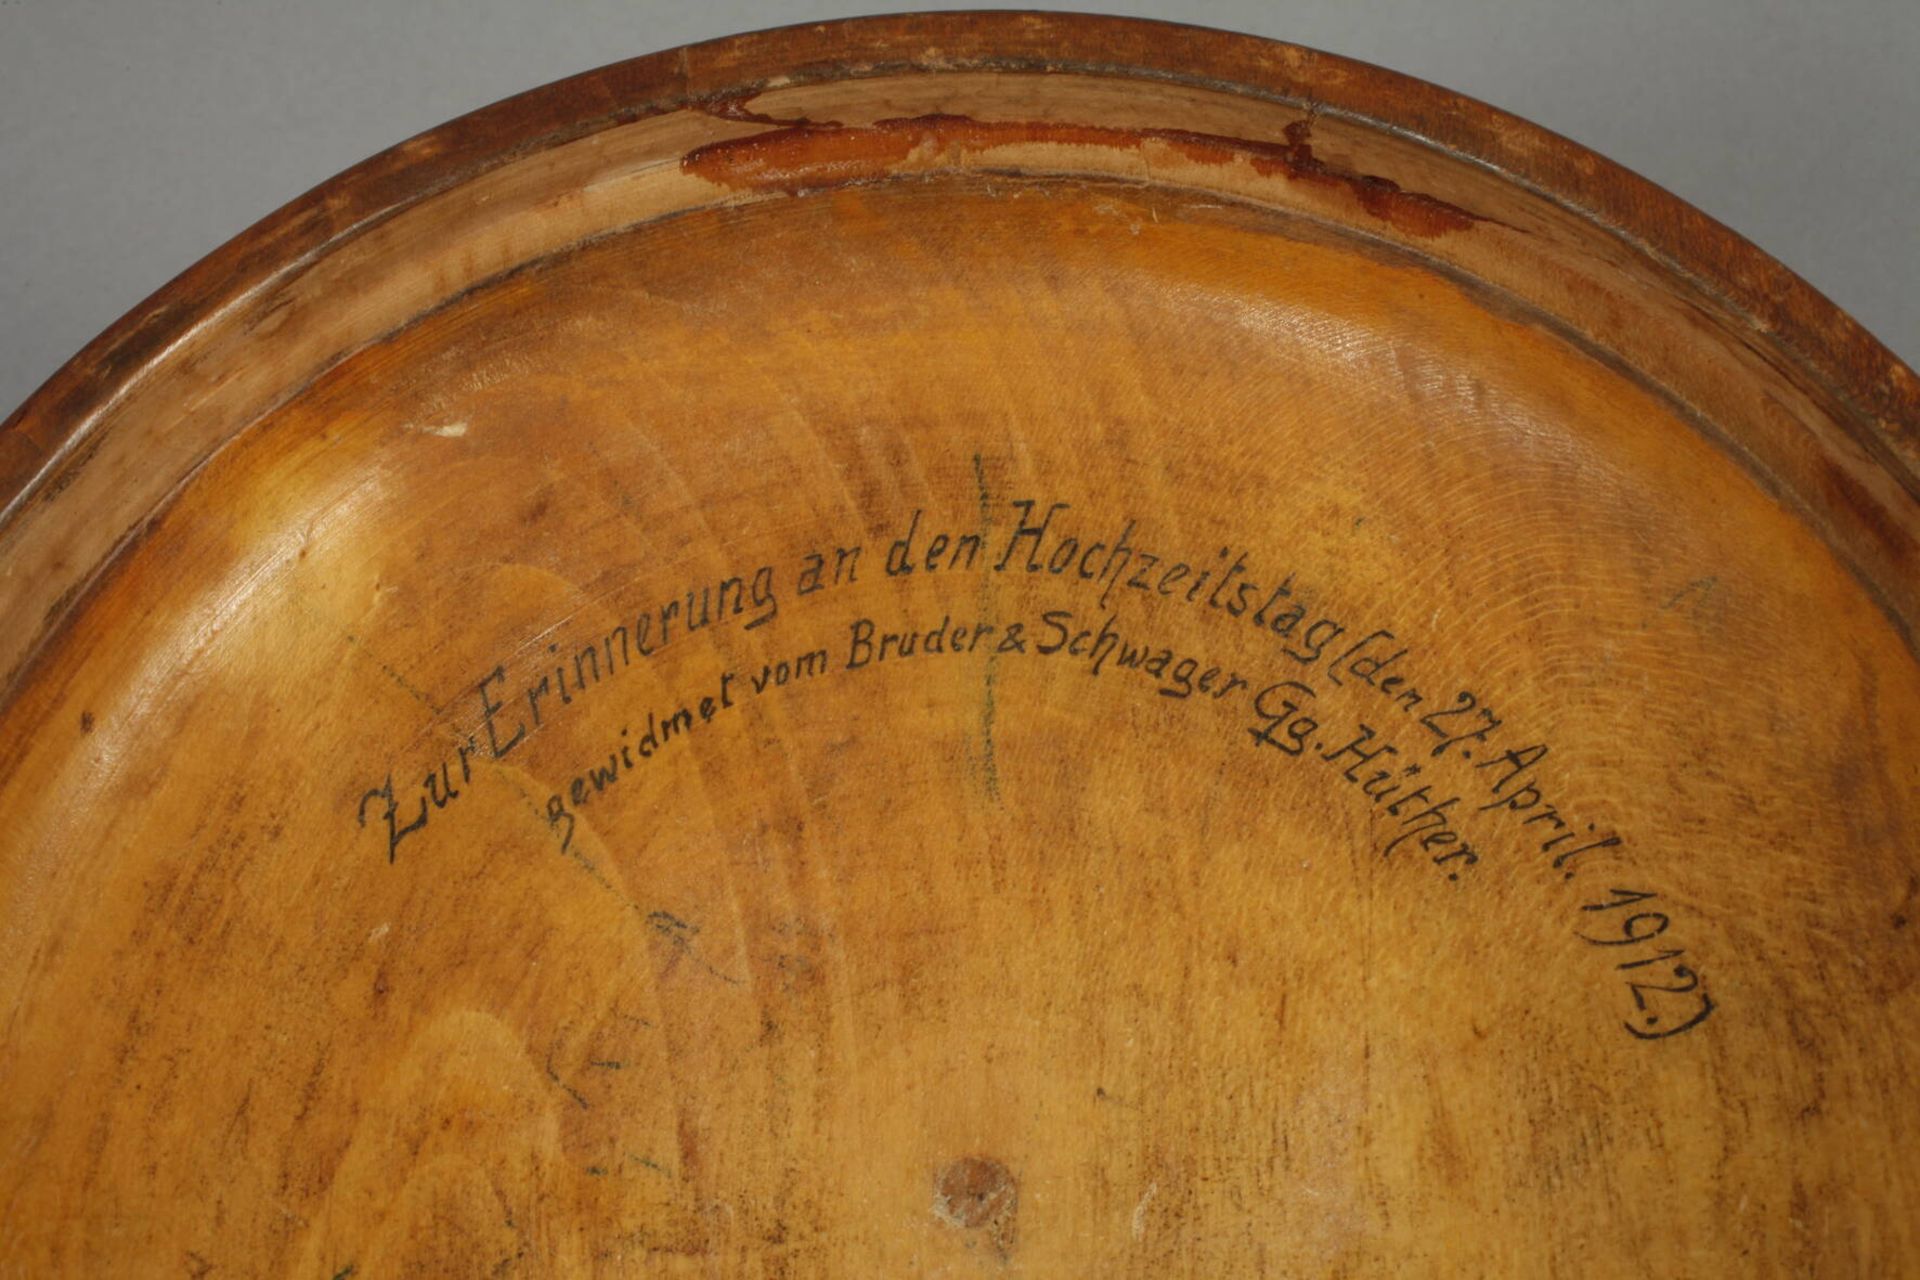 Zur Erinnerung an den Hochzeitstag (den 27. April. 1912.)
gewidmet vom Bruder & Schwager Gg. Hüther.